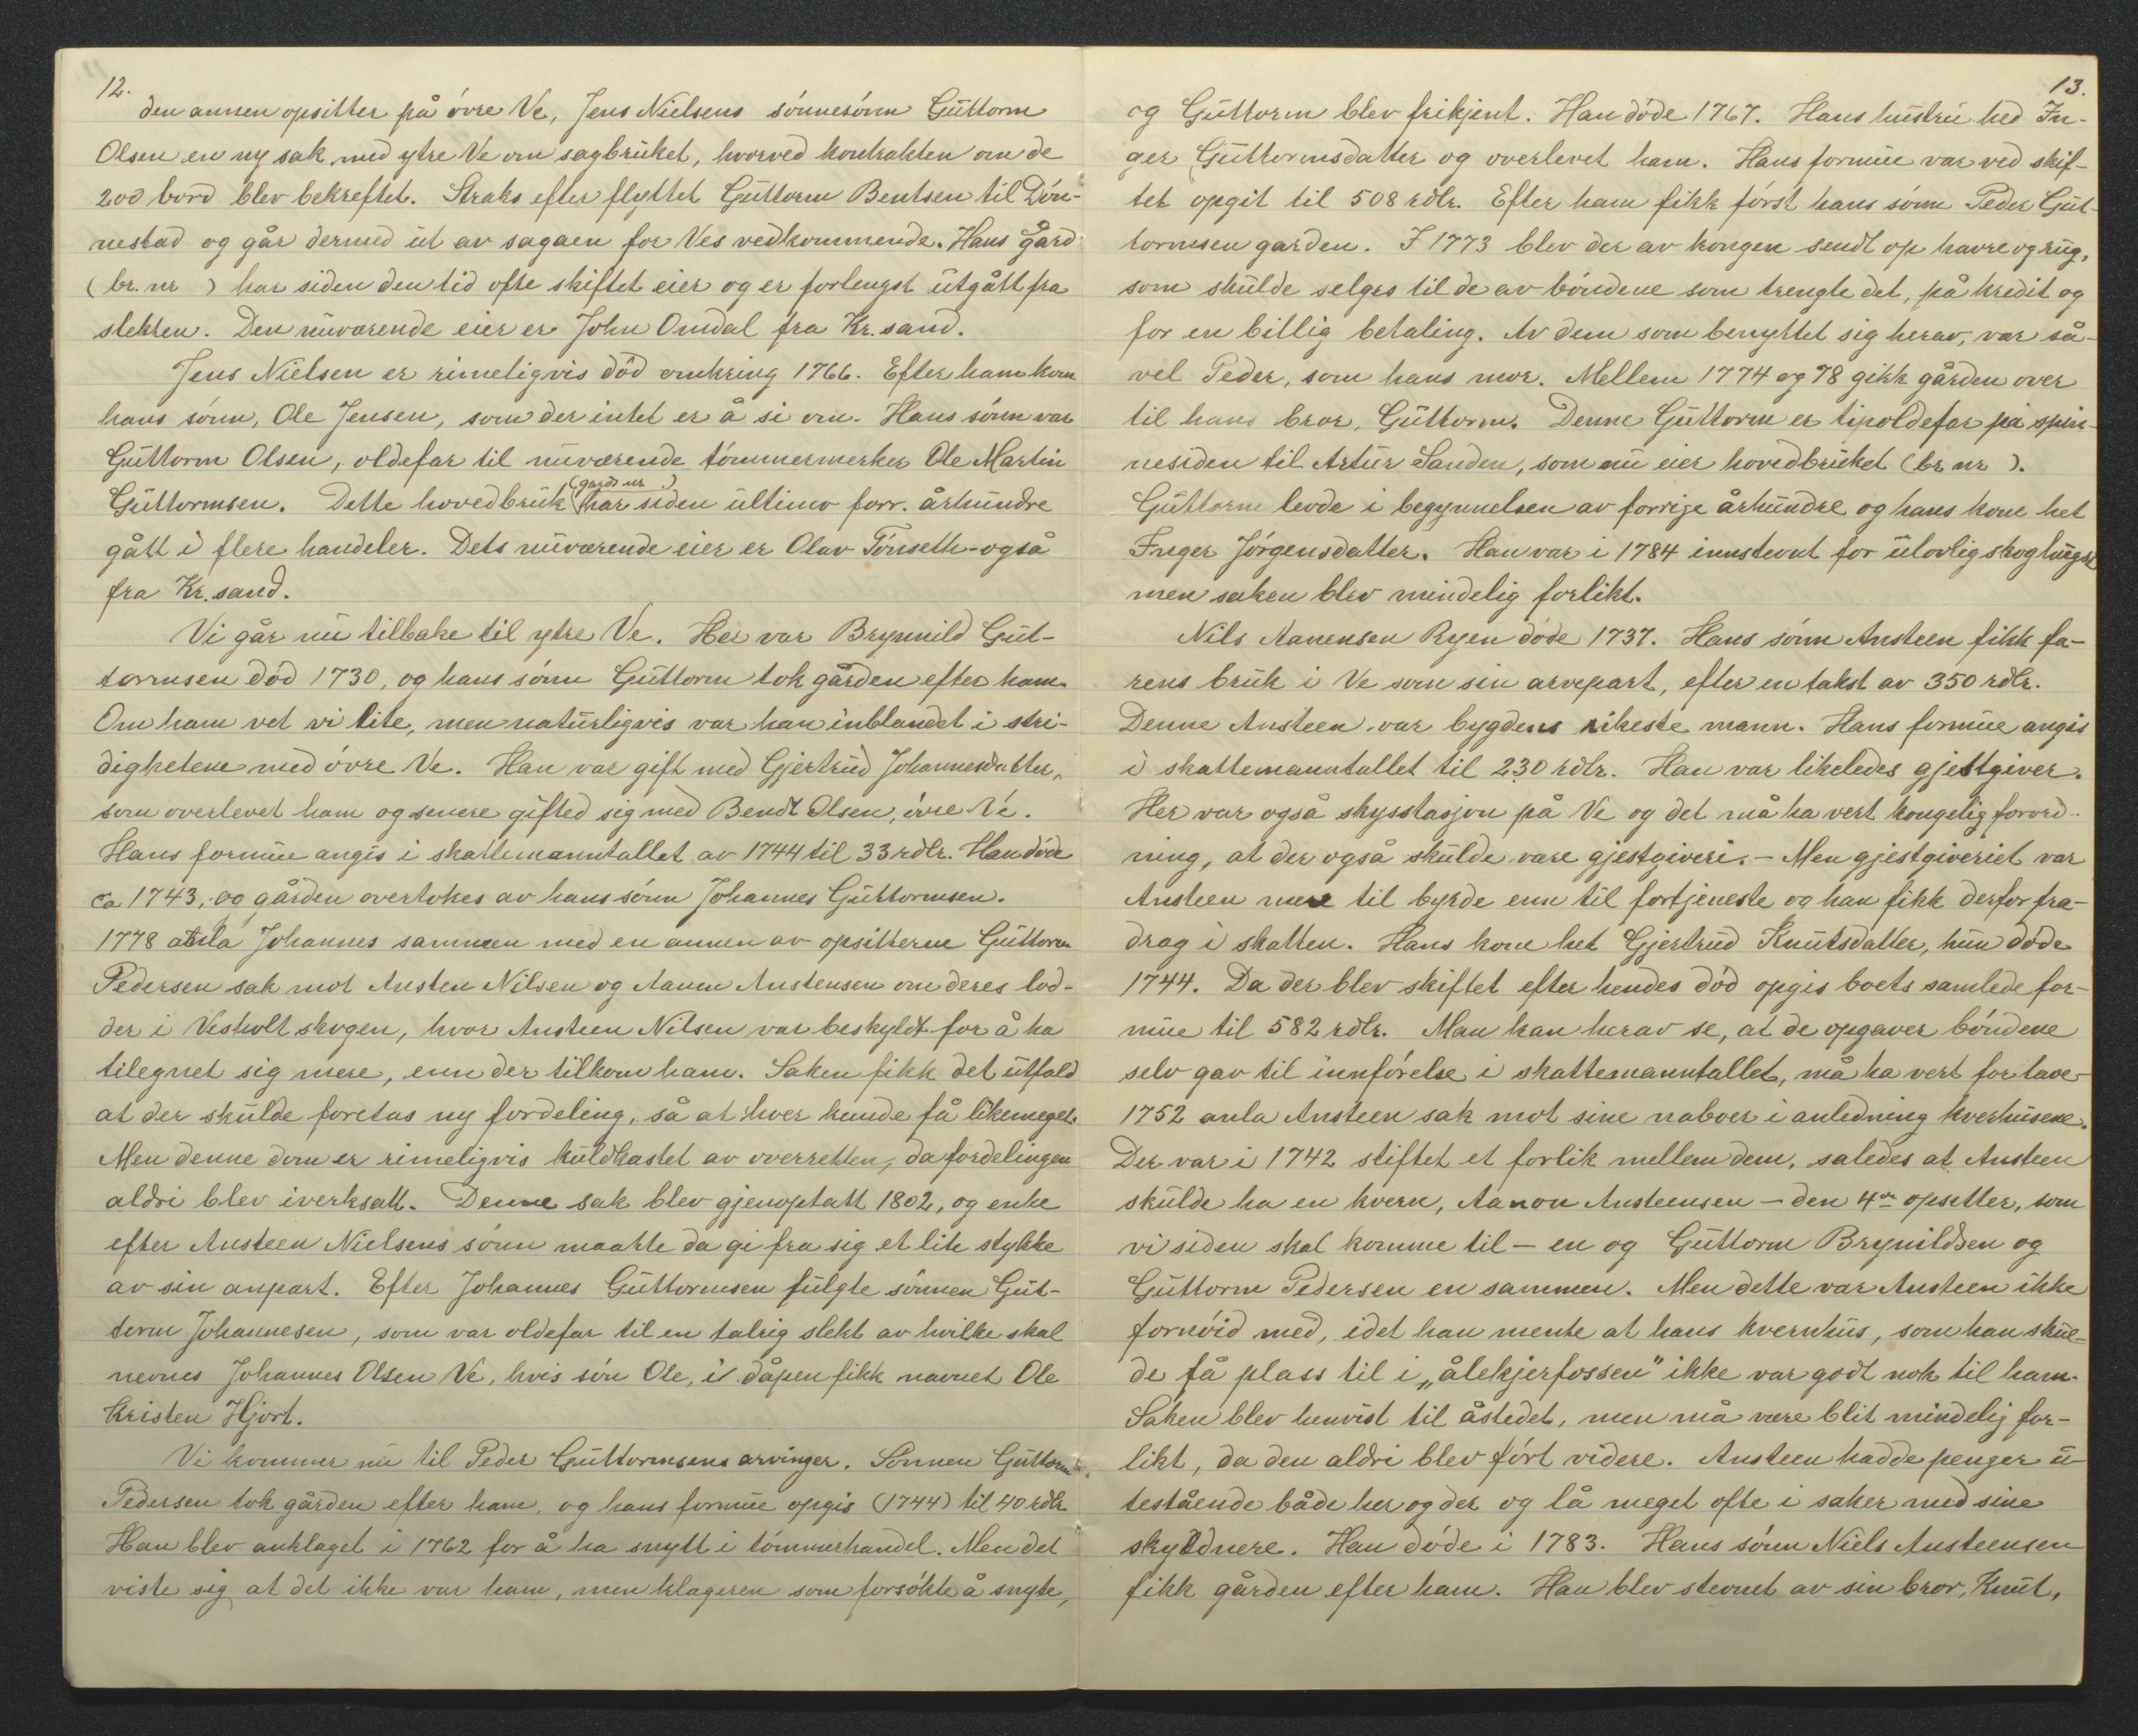 12.
den annen opsitter på øvre Ve, Jens Nielsens sønnesønn Guttorm
Olsen en ny sak med ytre Ve om sagbruket, hvorved kontrakten om de
200 bord blev bekreftet. Straks efter flyttet Guttorm Bentsen til Døn-
nestad og går dermed ut av sagaen for Ves vedkommende. Hans gård
(br. nr ) har siden den tid ofte skiftet eier og er forlengst utgått fra
slekten. Den nuværende eier er John Omdal fra Kr. sand.
Jens Nielsen er rimeligvis død omkring 1766. Efter ham kom
hans sønn, Ole Jensen, som der intet er å si om. Hans sønn var
Guttorm Olsen, oldefar til nuværende tømmermerker Ole Martin
Guttormsen. Dette hovedbruk (gards nr .) har siden ultimo forr. århundre
gått i flere handeler. Dets nuværende eier er Olav Tønseth - også
fra Kr. sand.
Vi går nu tilbake til ytre Ve. Her var Brynnild Gut-
tormsen død 1730, og hans sønn Guttorm tok gården efter ham.
Om ham vet vi lite, men naturligvis var han inblandet i stri-
dighetene med øvre Ve. Han var gift med Gjertrud Johannesdatter,
som overlevet ham og senere gifted sig med Bendt Olsen, øvre Ve.
Hans formue angis i skattemanntallet av 1744 til 33 rdlr. Han døde
ca 1743, og gården overtokes av hans sønn Johannes Guttormsen.
1778 anla Johannes sammen med en annen av opsitterne Guttorm
Pedersen sak mot Austen Nilsen og Aanen Austensen om deres lod-
der i Vesholt skogen, hvor Austeen Nilsen var beskyldt for å ha
tilegnet sig mere, enn der tilkom ham. Saken fikk det utfald
at der skulde foretas ny fordeling, så at hver kunde få likemeget.
Men denne dom er rimeligvis kuldkastet av overretten, da fordelingen
aldri blev iverksatt. Denne sak blev gjenoptatt 1802, og enke
efter Austeen Nielsens sønn maatte da gi fra sig et lite stykke
av sin anpart. Efter Johannes Guttormsen fulgte sønnen Gut-
torm Johannesen, som var oldefar til en talrig slekt av hvilke skal
nevnes Johannes Olsen Ve, hvis søn Ole, i dåpen fikk navnet Ole
Kristen Hjort.
Vi kommer nu til Peder Guttormsens arvinger. Sønnen Guttorm
Pedersen tok gården efter ham, og hans formue opgis (1744) til 40 rdlr
Han blev anklaget i 1762 for å ha snytt i tømmerhandel. Men det
viste sig at det ikke var ham, men klageren som forsøkte å snyte,
13.
og Guttorm blev frikjent. Han døde 1767. Hans hustru hed In-
ger Guttormsdatter og overlevet ham. Hans formue var ved skif-
tet opgit til 508 rdlr. Efter ham fikk først hans sønn Peder Gut-
tormsen garden. I 1773 blev der av kongen sendt op havre og rug,
som skulde selges til de av bøndene som trengte det, på kredit og
for en billig betaling. Av dem som benyttet sig herav, var så-
vel Peder, som hans mor. Mellem 1774 og 78 gikk gården over
til hans bror, Guttorm. Denne Guttorm er tipoldefar på spin-
nesiden til Artur Sanden, som nu eier hovedbruket (br. nr ).
Guttorm levde i begynnelsen av forrige århundre og hans kone het
Inger Jørgensdatter. Han var i 1784 innstevnt for ulovlig skoghugst
men saken blev mindelig forlikt.
Nils Aanensen Ryen døde 1737. Hans sønn Austeen fikk fa-
rens bruk i Ve som sin arvepart, efter en takst av 350 rdlr.
Denne Austeen var bygdens rikeste mann. Hans formue angis
i skattemanntallet til 230 rdlr. Han var likeledes gjestgiver.
Her var også skysstasjon på Ve og det må ha vert kongelig forord-
ning, at der også skulde vare gjestgiveri. - Men gjestgiveriet var
Austeen mere til byrde enn til fortjeneste og han fikk derfor fra-
drag i skatten. Hans kone het Gjertrud Knutsdatter, hun døde
1744. Da der blev skiftet efter hendes død opgis boets samlede for-
mue til 582 rdlr. Man kan herav se, at de opgaver bøndene
selv gav til innførelse i skattemanntallet, må ha vert for lave -
1752 anla Austeen sak mot sine naboer i anledning kverhusene.
Der var i 1742 stiftet et forlik mellem dem, saledes at Austeen
skulde ha en kvern, Aanon Austeensen - den 4de opsetter, som
vi siden skal komme til - en og Guttorm Brynildsen og
Guttorm Pedersen en sammen. Men dette var Austeen ikke
fornøid med, idet han mente at hans kvernhus, som han skul-
de få plass til i "ålekjerfossen" ikke var godt nok til ham.
Saken blev henvist til åstedet, men må være blit mindelig for-
likt, da den aldri blev ført videre. Austeen hadde penger u-
testående både her og der og lå meget ofte i saker med sine
skyldnere. Han døde i 1783. Hans sønn Niels Austeensen
fikk gården efter ham. Han blev stevnet av sin bror, Knut,